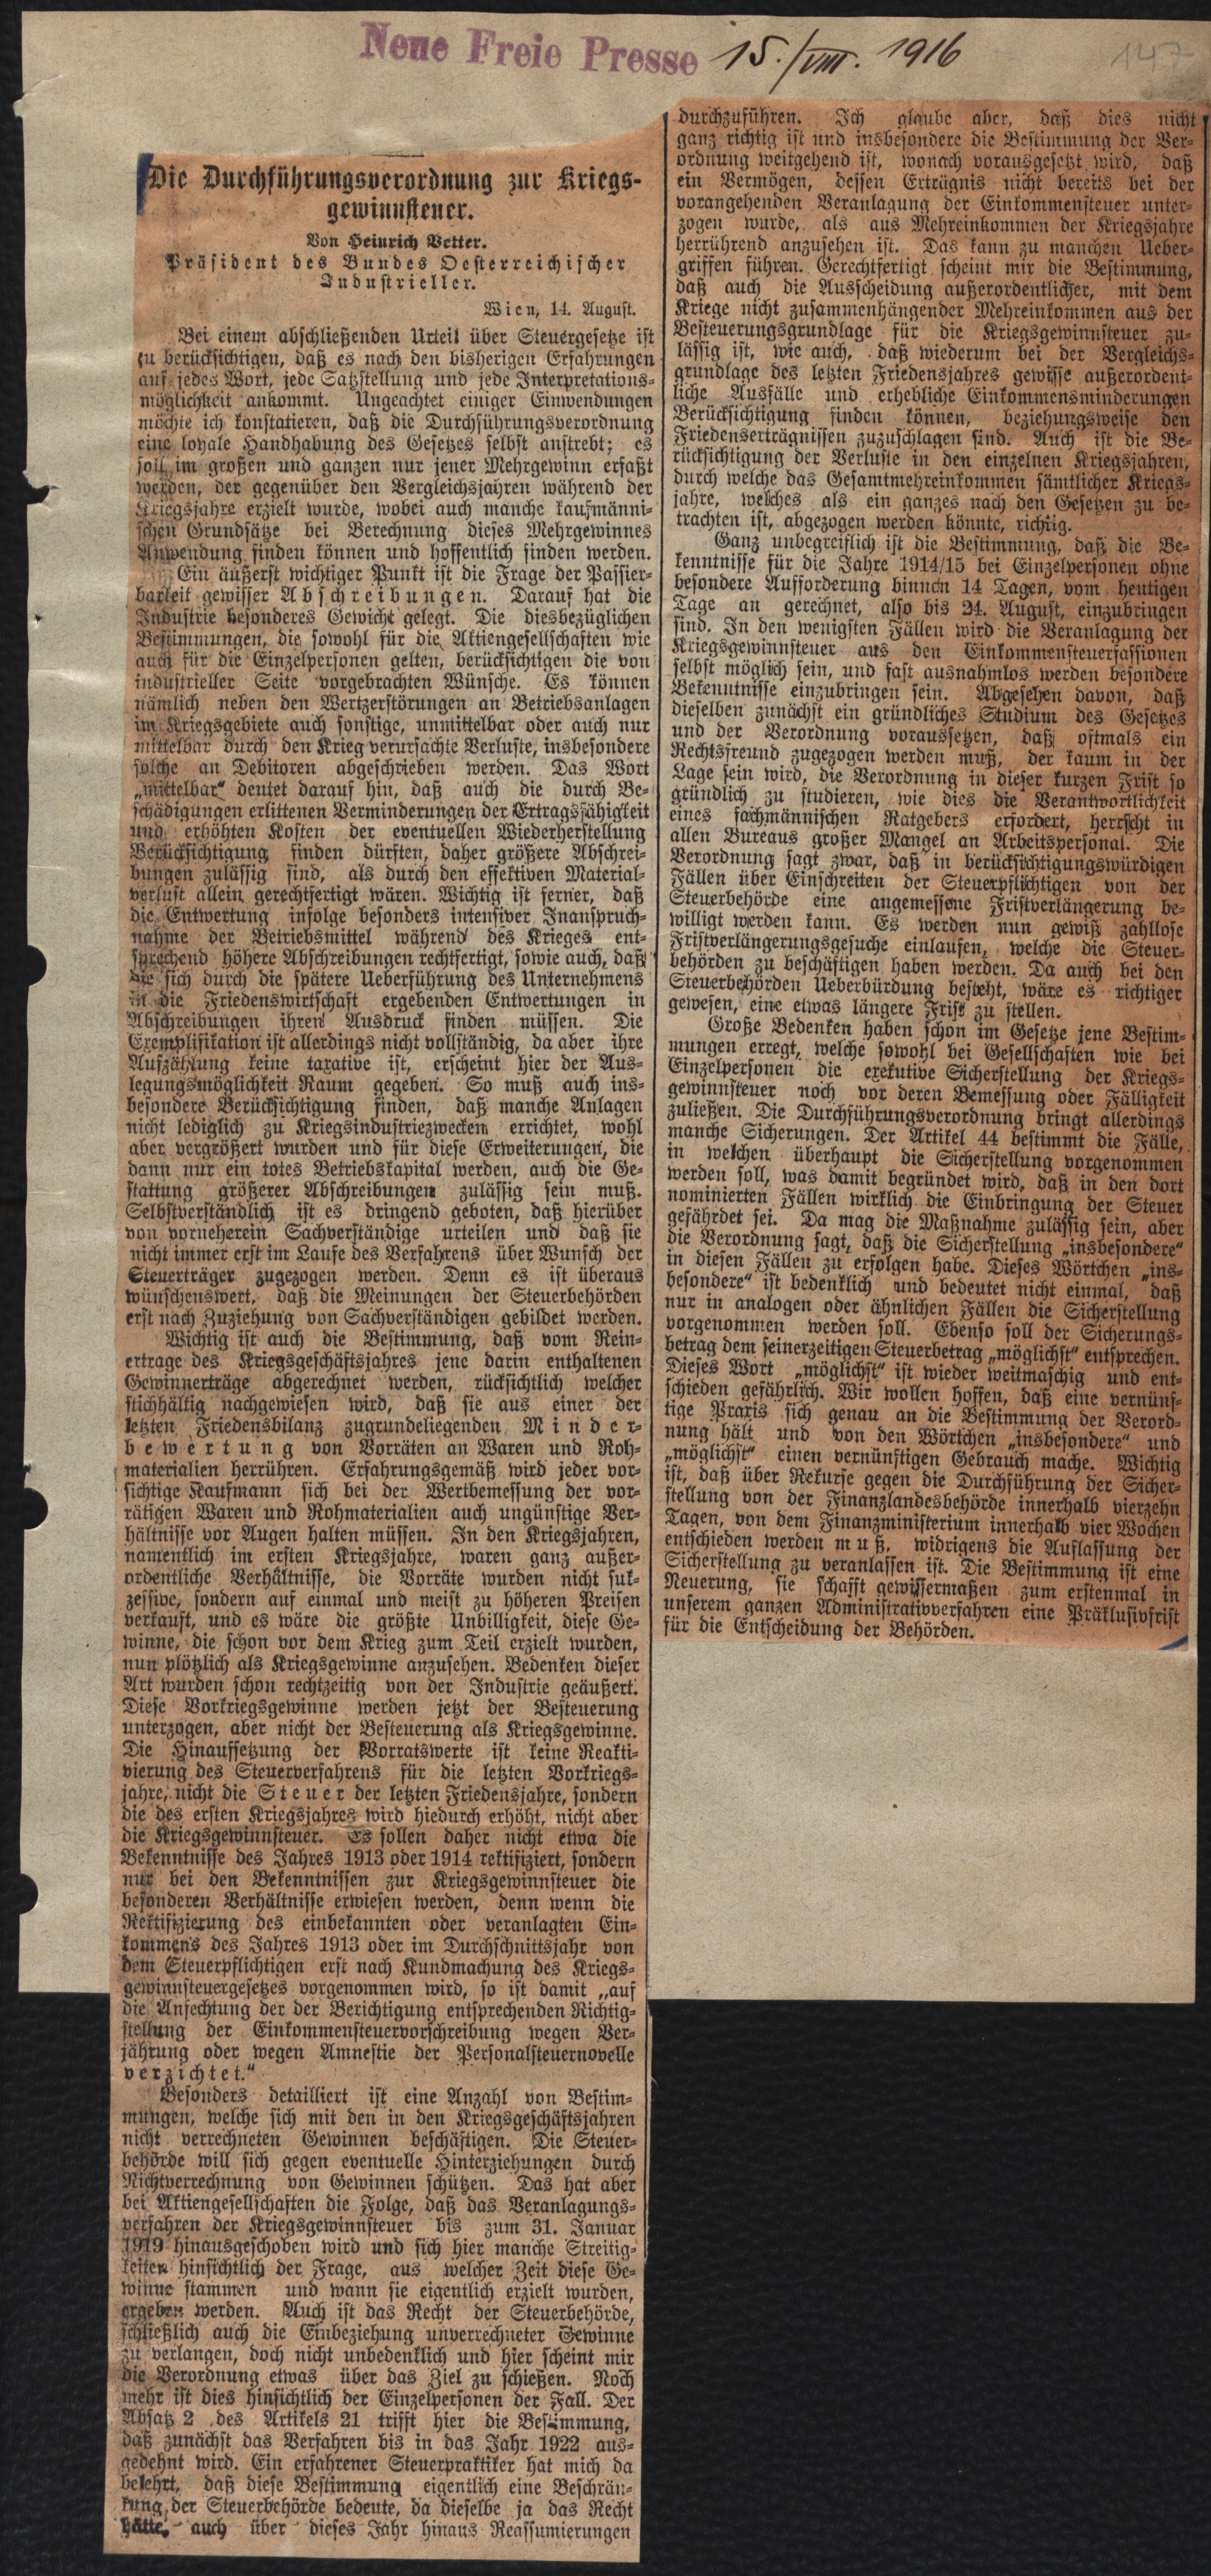 Neue Freie Presse 15./VIII. 1916
147
Die Durchführungsverordnung zur Kriegs-
gewinnsteuer.
Von Heinrich Vetter.
Präsident des Bundes Oesterreichischer
Industrieller.
Wien, 14. August.
Bei einem abschließenden Urteil über Steuergesetze ist
zu berücksichtigen, daß es nach den bisherigen Erfahrungen
auf jedes Wort, jede Satzstellung und jede Interpretations-
möglichkeit ankommt. Ungeachtet einiger Einwendungen
möchte ich konstatieren, daß die Durchführungsverordnung
eine loyale Handhabung des Gesetzes selbst anstrebt; es
soll im großen und ganzen nur jener Mehrgewinn erfaßt
werden, der gegenüber den Vergleichsjahren während der
Kriegsjahre erzielt wurde, wobei auch manche kaufmänni-
schen Grundsätze bei Berechnung dieses Mehrgewinnes
Anwendung finden können und hoffentlich finden werden.
Ein äußerst wichtiger Punkt ist die Frage der Passier-
barkeit gewisser Abschreibungen. Darauf hat die
Industrie besonderes Gewicht gelegt. Die diesbezüglichen
Bestimmungen, die sowohl für die Aktiengesellschaften wie
auch für die Einzelpersonen gelten, berücksichtigen die von
industrieller Seite vorgebrachten Wünsche. Es können
nämlich neben den Wertzerstörungen an Betriebsanlagen
im Kriegsgebiete auch sonstige, unmittelbar oder auch nur
mittelbar durch den Krieg verursachte Verluste, insbesondere
solche an Debitoren abgeschrieben werden. Das Wort
„mittelbar“ deutet darauf hin, daß auch die durch Be-
schädigungen erlittenen Verminderungen der Ertragsfähigkeit
und erhöhten Kosten der eventuellen Wiederherstellung
Berücksichtigung finden dürften, daher größere Abschrei-
bungen zulässig sind, als durch den effektiven Material-
verlust allein gerechtfertigt wären. Wichtig ist ferner, daß
die Entwertung infolge besonders intensiver Inanspruch-
nahme der Betriebsmittel während des Krieges ent-
sprechend höhere Abschreibungen rechtfertigt, sowie auch, daß
die sich durch die spätere Ueberführung des Unternehmens
in die Friedenswirtschaft ergebenden Entwertungen in
Abschreibungen ihren Ausdruck finden müssen. Die
Exemplifikation ist allerdings nicht vollständig, da aber ihre
Aufzählung keine taxative ist, erscheint hier der Aus-
legungsmöglichkeit Raum gegeben. So muß auch ins-
besondere Berücksichtigung finden, daß manche Anlagen
nicht lediglich zu Kriegsindustriezwecken errichtet, wohl
aber vergrößert wurden und für diese Erweiterungen, die
dann nur ein totes Betriebskapital werden, auch die Ge-
stattung größerer Abschreibungen zulässig sein muß.
Selbstverständlich ist es dringend geboten, daß hierüber
von vorneherein Sachverständige urteilen und daß sie
nicht immer erst im Laufe des Verfahrens über Wunsch der
Steuerträger zugezogen werden. Denn es ist überaus
wünschenswert, daß die Meinungen der Steuerbehörden
erst nach Zuziehung von Sachverständigen gebildet werden.
Wichtig ist auch die Bestimmung, daß vom Rein-
ertrage des Kriegsgeschäftsjahres jene darin enthaltenen
Gewinnerträge abgerechnet werden, rücksichtlich welcher
stichhältig nachgewiesen wird, daß sie aus einer der
letzten Friedensbilanz zugrundeliegenden Minder-
bewertung von Vorräten an Waren und Roh-
materialien herrühren. Erfahrungsgemäß wird jeder vor-
sichtige Kaufmann sich bei der Wertbemessung der vor-
rätigen Waren und Rohmaterialien auch ungünstige Ver-
hältnisse vor Augen halten müssen. In den Kriegsjahren,
namentlich im ersten Kriegsjahre, waren ganz außer-
ordentliche Verhältnisse, die Vorräte wurden nicht suk-
zessive, sondern auf einmal und meist zu höheren Preisen
verkauft, und es wäre die größte Unbilligkeit, diese Ge-
winne, die schon vor dem Krieg zum Teil erzielt wurden,
nun plötzlich als Kriegsgewinne anzusehen. Bedenken dieser
Art wurden schon rechtzeitig von der Industrie geäußert.
Diese Vorkriegsgewinne werden jetzt der Besteuerung
unterzogen, aber nicht der Besteuerung als Kriegsgewinne.
Die Hinaufsetzung der Vorratswerte ist keine Reakti-
vierung des Steuerverfahrens für die letzten Vorkriegs-
jahre, nicht die Steuer der letzten Friedensjahre, sondern
die des ersten Kriegsjahres wird hiedurch erhöht, nicht aber
die Kriegsgewinnsteuer. Es sollen daher nicht etwa die
Bekenntnisse des Jahres 1913 oder 1914 rektifiziert, sondern
nur bei den Bekenntnissen zur Kriegsgewinnsteuer die
besonderen Verhältnisse erwiesen werden, denn wenn die
Rektifizierung des einbekannten oder veranlagten Ein-
kommens des Jahres 1913 oder im Durchschnittsjahr von
dem Steuerpflichtigen erst nach Kundmachung des Kriegs-
gewinnsteuergesetzes vorgenommen wird, so ist damit „auf
die Anfechtung der der Berichtigung entsprechenden Richtig-
stellung der Einkommensteuervorschreibung wegen Ver-
jährung oder wegen Amnestie der Personalsteuernovelle
verzichtet.“
Besonders detailliert ist eine Anzahl von Bestim-
mungen, welche sich mit den in den Kriegsgeschäftsjahren
nicht verrechneten Gewinnen beschäftigen. Die Steuer-
behörde will sich gegen eventuelle Hinterziehungen durch
Nichtverrechnung von Gewinnen schützen. Das hat aber
bei Aktiengesellschaften die Folge, daß das Veranlagungs-
verfahren der Kriegsgewinnsteuer bis zum 31. Januar
1919 hinausgeschoben wird und sich hier manche Streitig-
keiten hinsichtlich der Frage, aus welcher Zeit diese Ge-
winne stammen und wann sie eigentlich erzielt wurden,
ergeben werden. Auch ist das Recht der Steuerbehörde,
schließlich auch die Einbeziehung unverrechneter Gewinne
zu verlangen, doch nicht unbedenklich und hier scheint mir
die Verordnung etwas über das Ziel zu schießen. Noch
mehr ist dies hinsichtlich der Einzelpersonen der Fall. Der
Absatz 2 des Artikels 21 trifft hier die Bestimmung,
daß zunächst das Verfahren bis in das Jahr 1922 aus-
gedehnt wird. Ein erfahrener Steuerpraktiker hat mich da
belehrt, daß diese Bestimmung eigentlich eine Beschrän-
kung der Steuerbehörde bedeute, da dieselbe ja das Recht
hätte, auch über dieses Jahr hinaus Reassumierungen
durchzuführen. Ich glaube aber, daß dies nicht
ganz richtig ist und insbesondere die Bestimmung der Ver-
ordnung weitgehend ist, wonach vorausgesetzt wird, daß
ein Vermögen, dessen Erträgnis nicht bereits bei der
vorangehenden Veranlagung der Einkommensteuer unter-
zogen wurde, als aus Mehreinkommen der Kriegsjahre
herrührend anzusehen ist. Das kann zu manchen Ueber-
griffen führen. Gerechtfertigt scheint mir die Bestimmung,
daß auch die Ausscheidung außerordentlicher, mit dem
Kriege nicht zusammenhängender Mehreinkommen aus der
Besteuerungsgrundlage für die Kriegsgewinnsteuer zu-
lässig ist, wie auch, daß wiederum bei der Vergleichs-
grundlage des letzten Friedensjahres gewisse außerordent-
liche Ausfälle und erhebliche Einkommensminderungen
Berücksichtigung finden können, beziehungsweise den
Friedenserträgnissen zuzuschlagen sind. Auch ist die Be-
rücksichtigung der Verluste in den einzelnen Kriegsjahren,
durch welche das Gesamtmehreinkommen sämtlicher Kriegs-
jahre, welches als ein ganzes nach den Gesetzen zu be-
trachten ist, abgezogen werden könnte, richtig.
Ganz unbegreiflich ist die Bestimmung, daß die Be-
kenntnisse für die Jahre 1914/15 bei Einzelpersonen ohne
besondere Aufforderung binnen 14 Tagen, vom heutigen
Tage an gerechnet, also bis 24. August, einzubringen
sind. In den wenigsten Fällen wird die Veranlagung der
Kriegsgewinnsteuer aus den Einkommensteuerfassionen
selbst möglich sein, und fast ausnahmlos werden besondere
Bekenntnisse einzubringen sein. Abgesehen davon, daß
dieselben zunächst ein gründliches Studium des Gesetzes
und der Verordnung voraussetzen, daß oftmals ein
Rechtsfreund zugezogen werden muß, der kaum in der
Lage sein wird, die Verordnung in dieser kurzen Frist so
gründlich zu studieren, wie dies die Verantwortlichkeit
eines fachmännischen Ratgebers erfordert, herrscht in
allen Bureaus großer Mangel an Arbeitspersonal. Die
Verordnung sagt zwar, daß in berücksichtigungswürdigen
Fällen über Einschreiten der Steuerpflichtigen von der
Steuerbehörde eine angemessene Fristverlängerung be-
willigt werden kann. Es werden nun gewiß zahllose
Fristverlängerungsgesuche einlaufen, welche die Steuer-
behörden zu beschäftigen haben werden. Da auch bei den
Steuerbehörden Ueberbürdung besteht, wäre es richtiger
gewesen, eine etwas längere Frist zu stellen.
Große Bedenken haben schon im Gesetze jene Bestim-
mungen erregt, welche sowohl bei Gesellschaften wie bei
Einzelpersonen die exekutive Sicherstellung der Kriegs-
gewinnsteuer noch vor deren Bemessung oder Fälligkeit
zuließen. Die Durchführungsverordnung bringt allerdings
manche Sicherungen. Der Artikel 44 bestimmt die Fälle,
in welchen überhaupt die Sicherstellung vorgenommen
werden soll, was damit begründet wird, daß in den dort
nominierten Fällen wirklich die Einbringung der Steuer
gefährdet sei. Da mag die Maßnahme zulässig sein, aber
die Verordnung sagt, daß die Sicherstellung „insbesondere“
in diesen Fällen zu erfolgen habe. Dieses Wörtchen „ins-
besondere“ ist bedenklich und bedeutet nicht einmal, daß
nur in analogen oder ähnlichen Fällen die Sicherstellung
vorgenommen werden soll. Ebenso soll der Sicherungs-
betrag dem seinerzeitigen Steuerbetrag „möglichst“ entsprechen.
Dieses Wort „möglichst“ ist wieder weitmaschig und ent-
schieden gefährlich. Wir wollen hoffen, daß eine vernünf-
tige Praxis sich genau an die Bestimmung der Verord-
nung hält und von den Wörtchen „insbesondere“ und
„möglichst“ einen vernünftigen Gebrauch mache. Wichtig
ist, daß über Rekurse gegen die Durchführung der Sicher-
stellung von der Finanzlandesbehörde innerhalb vierzehn
Tagen, von dem Finanzministerium innerhalb vier Wochen
entschieden werden muß, widrigens die Auflassung der
Sicherstellung zu veranlassen ist. Die Bestimmung ist eine
Neuerung, sie schafft gewissermaßen zum erstenmal in
unserem ganzen Administrativverfahren eine Präklusivfrist
für die Entscheidung der Behörden.